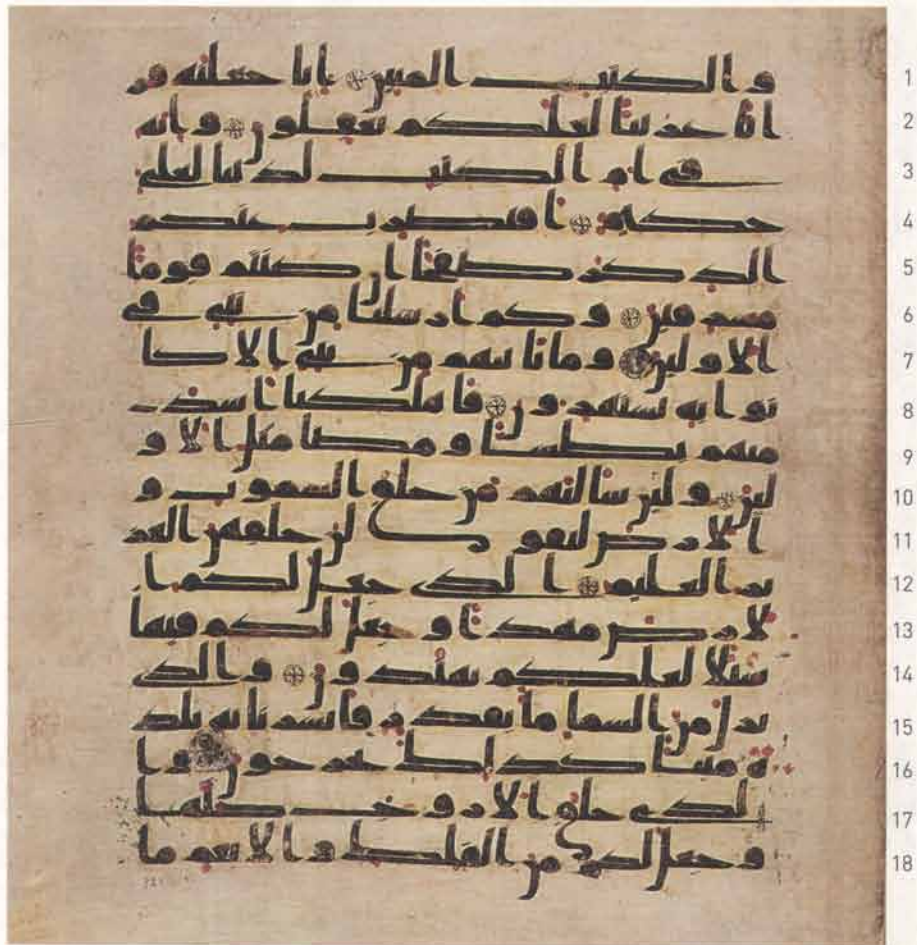 والكتب المبين انا جعلنه قر 1
انا عربيا لعلكم تعقلون وانه 2
في ام الكتب لدينا لعلي 3
حكيم افنضرب عنكم 4
الذكر صفحا ان كنتم قوما 5
مسرفين وكم ارسلنا من نبي في 6
الاولين وما ياتيهم من نبي الا كا 7
نوا به يستهزون فاهلكنا اشد 8
منهم بطشا ومضا مثل الاو 9
لين ولين سالتهم من خلق السموت و 10
الارض ليقولن خلقهن العز 11
يز العليم الذي جعل لكم ا 12
لارض مهدا وجعل لكم فيها 13
سبلا لعلكم تهتدون والذي 14
نزل من السما ما بقدر فانشرنا به بلد 15
ة ميتا كذلك تخرجون وا 16
لذي خلق الازوج كلها 17
وجعل لكم من الفلك والانعم ما 18